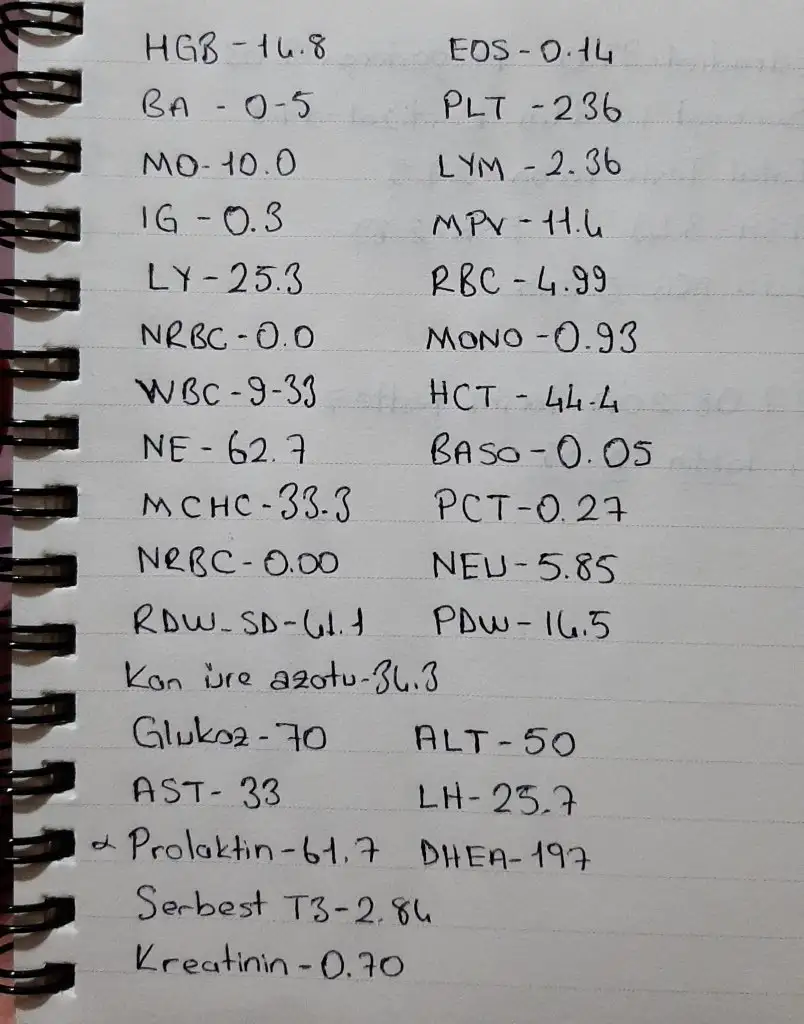 HGB - 14.8 EOS - 0.14
BA - 0-5 PLT - 236
MO - 10.0 LYM - 2.36
IG - 0.3 MPV - 11.4
LY - 25.3 RBC - 4.99
NRBC - 0.0 MONO - 0.93
WBC - 9-33 HCT - 44.4
NE - 62.7 BASO - 0.05
MCHC - 33.3 PCT - 0.27
NRBC - 0.00 NEU - 5.85
RDW_SD - 41.1 PDW - 14.5
Kan üre azotu - 34.3
Glukoz - 70 ALT - 50
AST - 33 LH - 25.7
Prolaktin - 61.7 DHEA - 197
Serbest T3 - 2.84
Kreatinin - 0.70